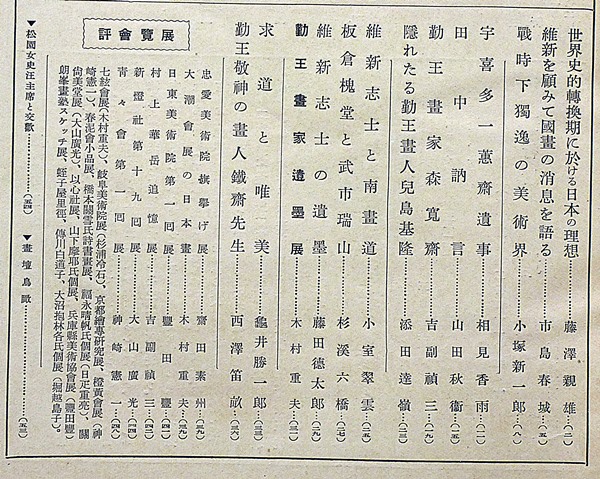 世界史的轉換期に於ける日本の理想……藤澤親雄…(二)
維新を顧みて國畫の消息を語る……市島春城…(五)
戰時下獨逸の美術界……小塚新一郎…(八)
宇喜多一蕙齋遺事……相見香雨…(一一)
田中訥言……山田秋衞…(一五)
勤王畫家森寬齋……吉副禎三…(一九)
隱れたる勤王畫人兒島基隆……添田達嶺…(二三)
維新志士と南畫道……小室翠雲…(二五)
板倉槐堂と武市瑞山……杉溪六橋…(二七)
維新志士の遺墨……藤田德太郎…(二九)
勤王畫家遺墨展……木村重夫…(三一)
求道と唯美……龜井勝一郎…(三三)
勤王敬神の畫人鐵齋先生……西澤笛畝…(三六)
展覽會評
忠愛美術院旗擧げ展……齋田素州…(三九)
大潮會展の日本畫……木村重夫…(三九)
日東美術院第一回展……豐田豐…(四一)
村上華岳追憶展……吉副禎三…(四二)
新燈社第十九回展……大山廣光…(四四)
靑々會第一回展……神崎憲一…(四八)
七絃會展(木村重夫)、岐阜美術院展(杉浦冷石)、京都繪專硏究展、橙黃會展(神
崎憲一)、春泥會小品展、橋本關雪氏詩書畫展、福永晴帆氏個展(日疋重亮)、關
尙美堂展(大山廣光)、以心社展、山下摩耶氏個展、兵庫縣美術協會展(豐田豐)
朗峯畫塾スケッチ展、蛭子屋里徑、傳川白道子、大沼抱林各氏個展(堀越島子)。
▼松園女史汪主席と交歡……(五四) ▼畫壇鳥瞰……(五三)